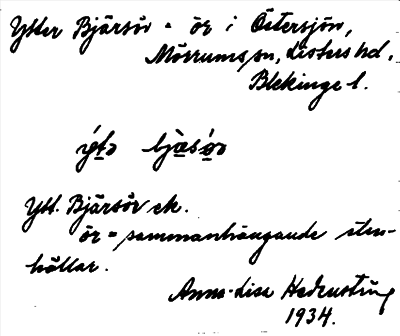 Ytter Bjärsör = ör i Östersjön,
Mörrums sn, Listers hd,
Blekinge l.
Ytt. Bjärsör ek.
ör = sammanhängande sten-
hällar.
Anna-Lisa Hedenstüng
1934.